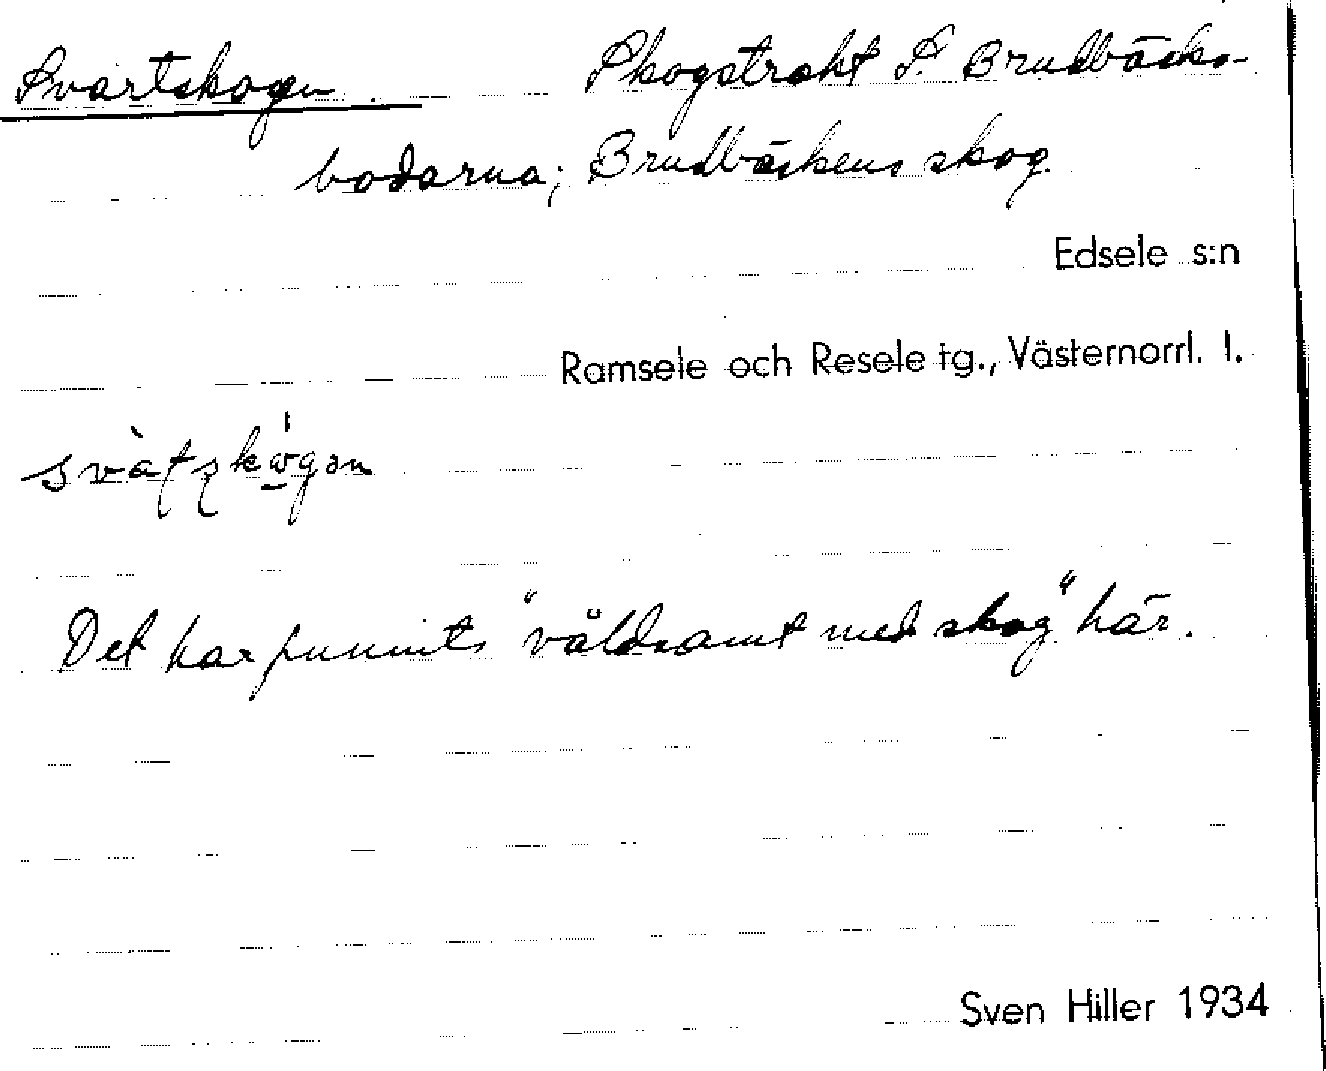 Svartskogen. Skogstrakt S. Brudbäcks-
bodarna; Brudbäckens skog.
Edsele s:n
Ramsele och Resele tg., Västernorrl. l.
Det har funnits "väldsamt med skog" här.
Sven Hiller 1934